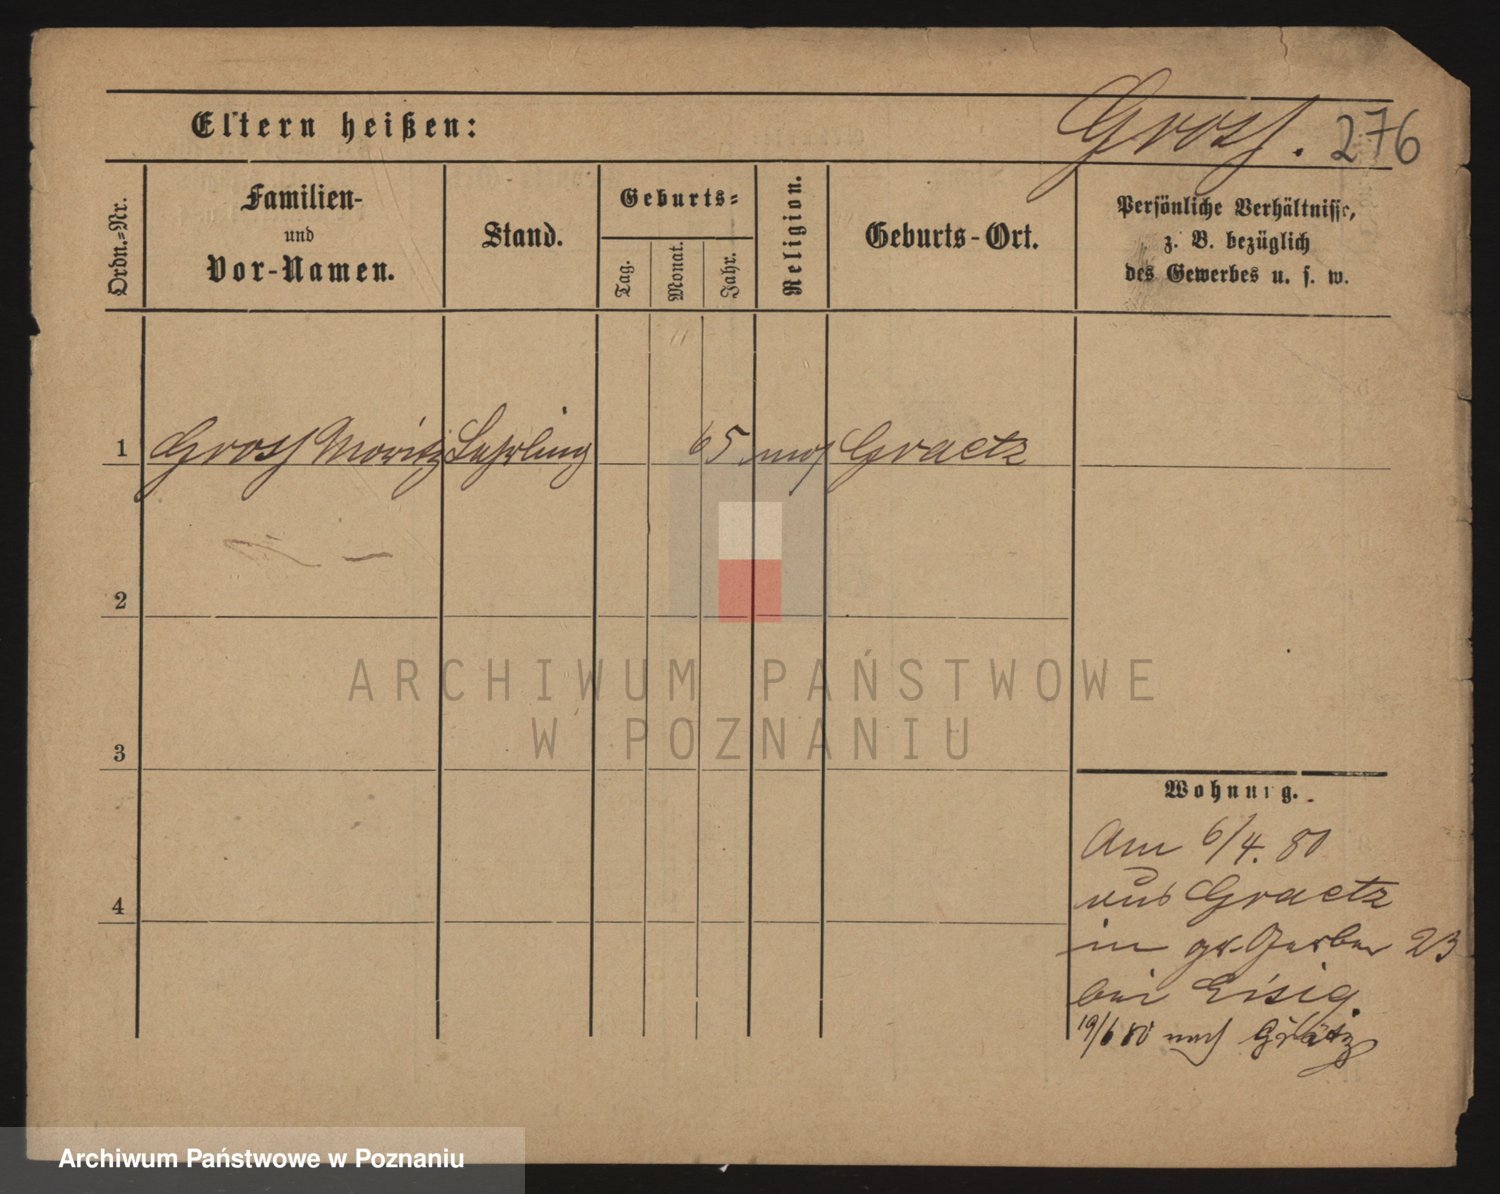 Eltern heißen:
Gross. 276
Ordn.=Nr.
Familien-
und
Vor-Namen.
Stand.
Geburts=
Tag.
Monat.
Jahr.
Religion.
Geburts-Ort.
Persönliche Verhältnisse,
z. B. bezüglich
des Gewerbes u. s. w.
1 Gross Moritz Lehrling 65 mos Graetz
2
3
4
Wohnung.
Am 6/4. 80
aus Graetz
in gr. Gerber 23
bei Eisig.
19/6 80 nach Grätz
ARCHIWUM PAŃSTWOWE
W POZNANIU
Archiwum Państwowe w Poznaniu